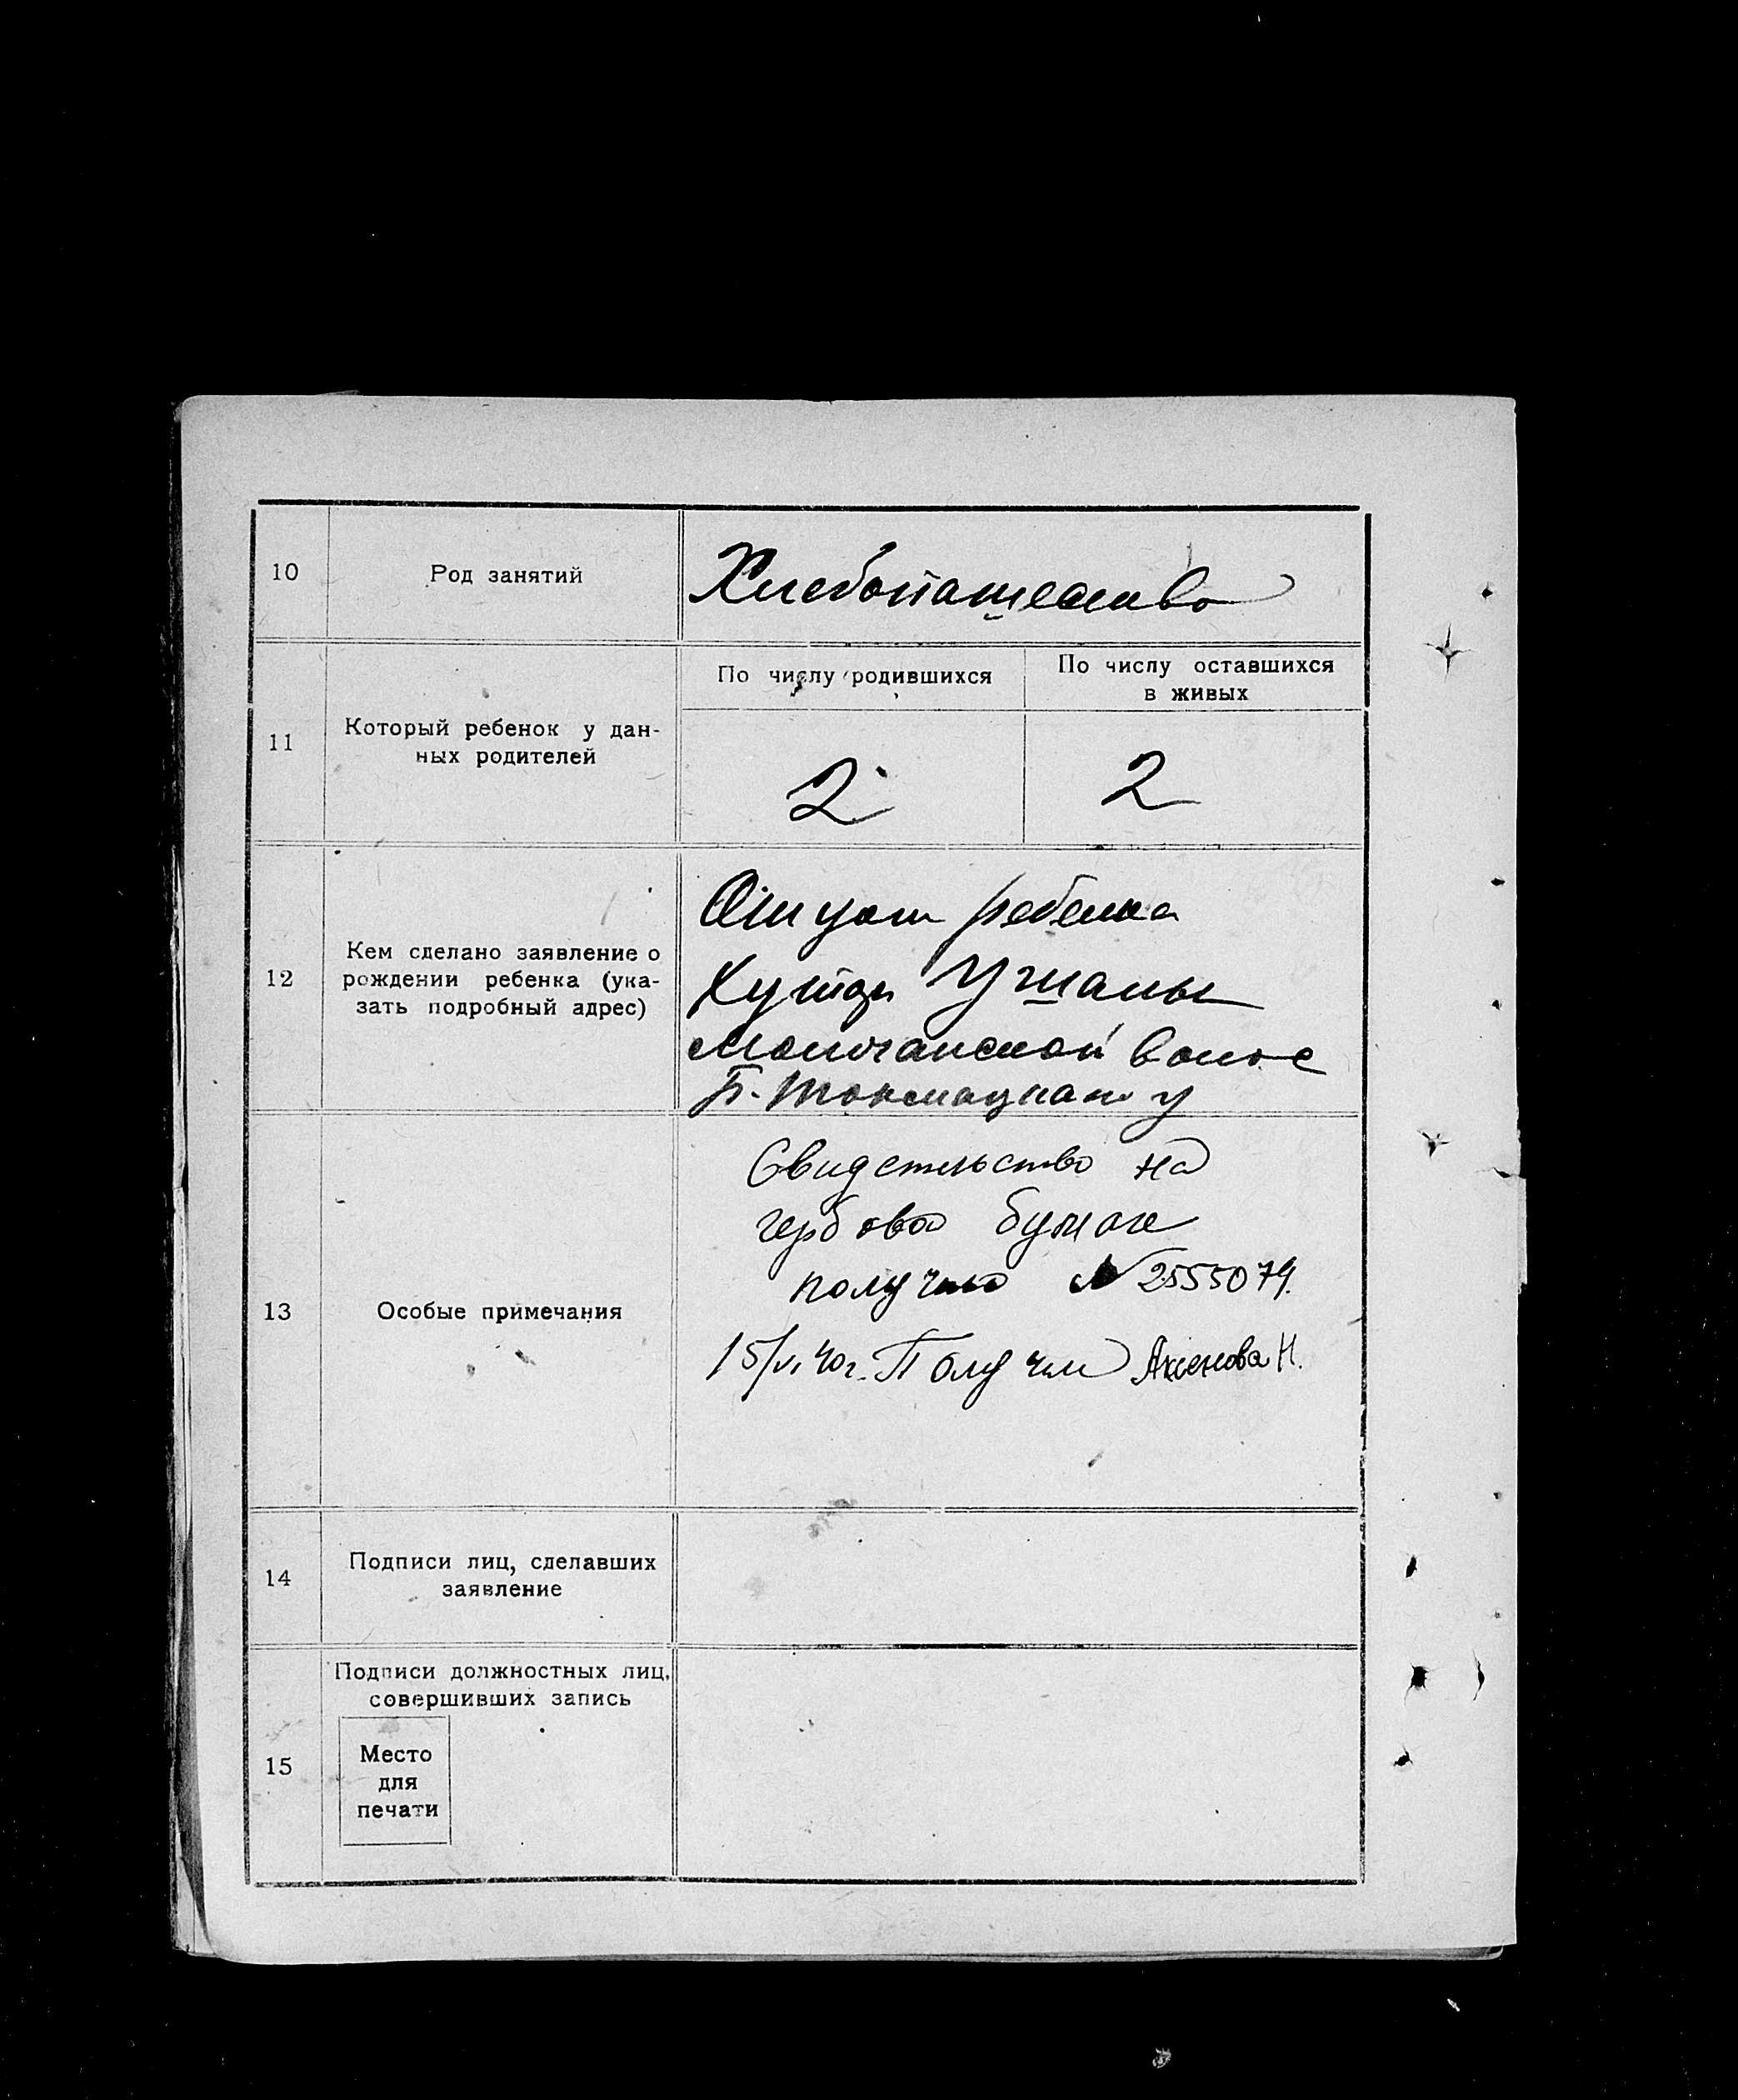 10
Род занятий
Хлебопашество
11
Который ребенок у дан-
ных родителей
По числу родившихся
По числу оставшихся
в живых
2
2
12
Кем сделано заявление о
рождении ребенка (ука-
зать подробный адрес)
Отцом ребенка
Хутор
Молочанской волос
Б. Токмацкаго у
13
Особые примечания
Свидетельство на
гербово бумаге
получено № 2555074.
15/VI 40г. Получил Аксенова Н.
14
Подписи лиц, сделавших
заявление
15
Подписи должностных лиц,
совершивших запись
Место
для
печати